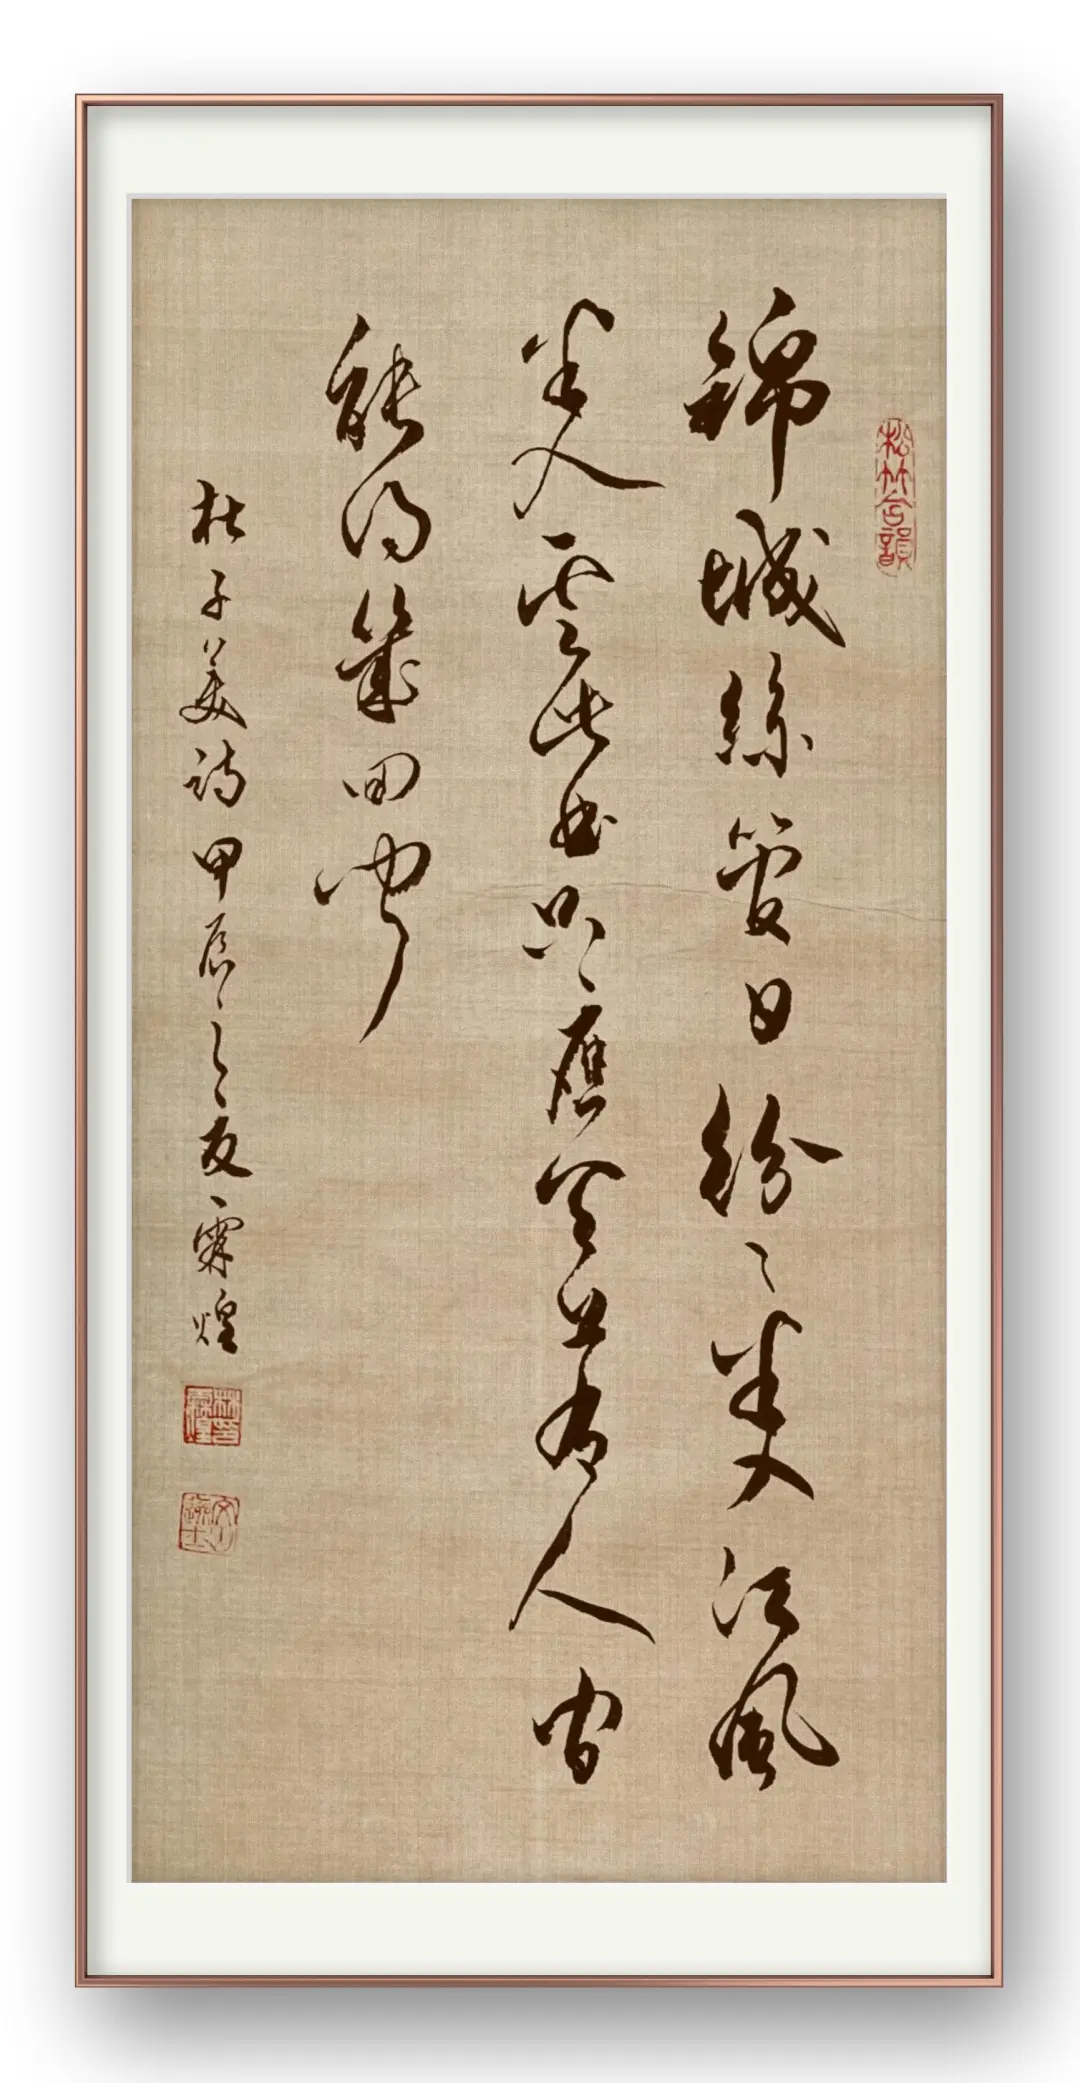 松竹含韻
錦城絲管日紛〻半入江風
半入雲此曲只應天上有人間
能得幾回聞
杜子美詩甲辰之夏霖煌
林霖煌印